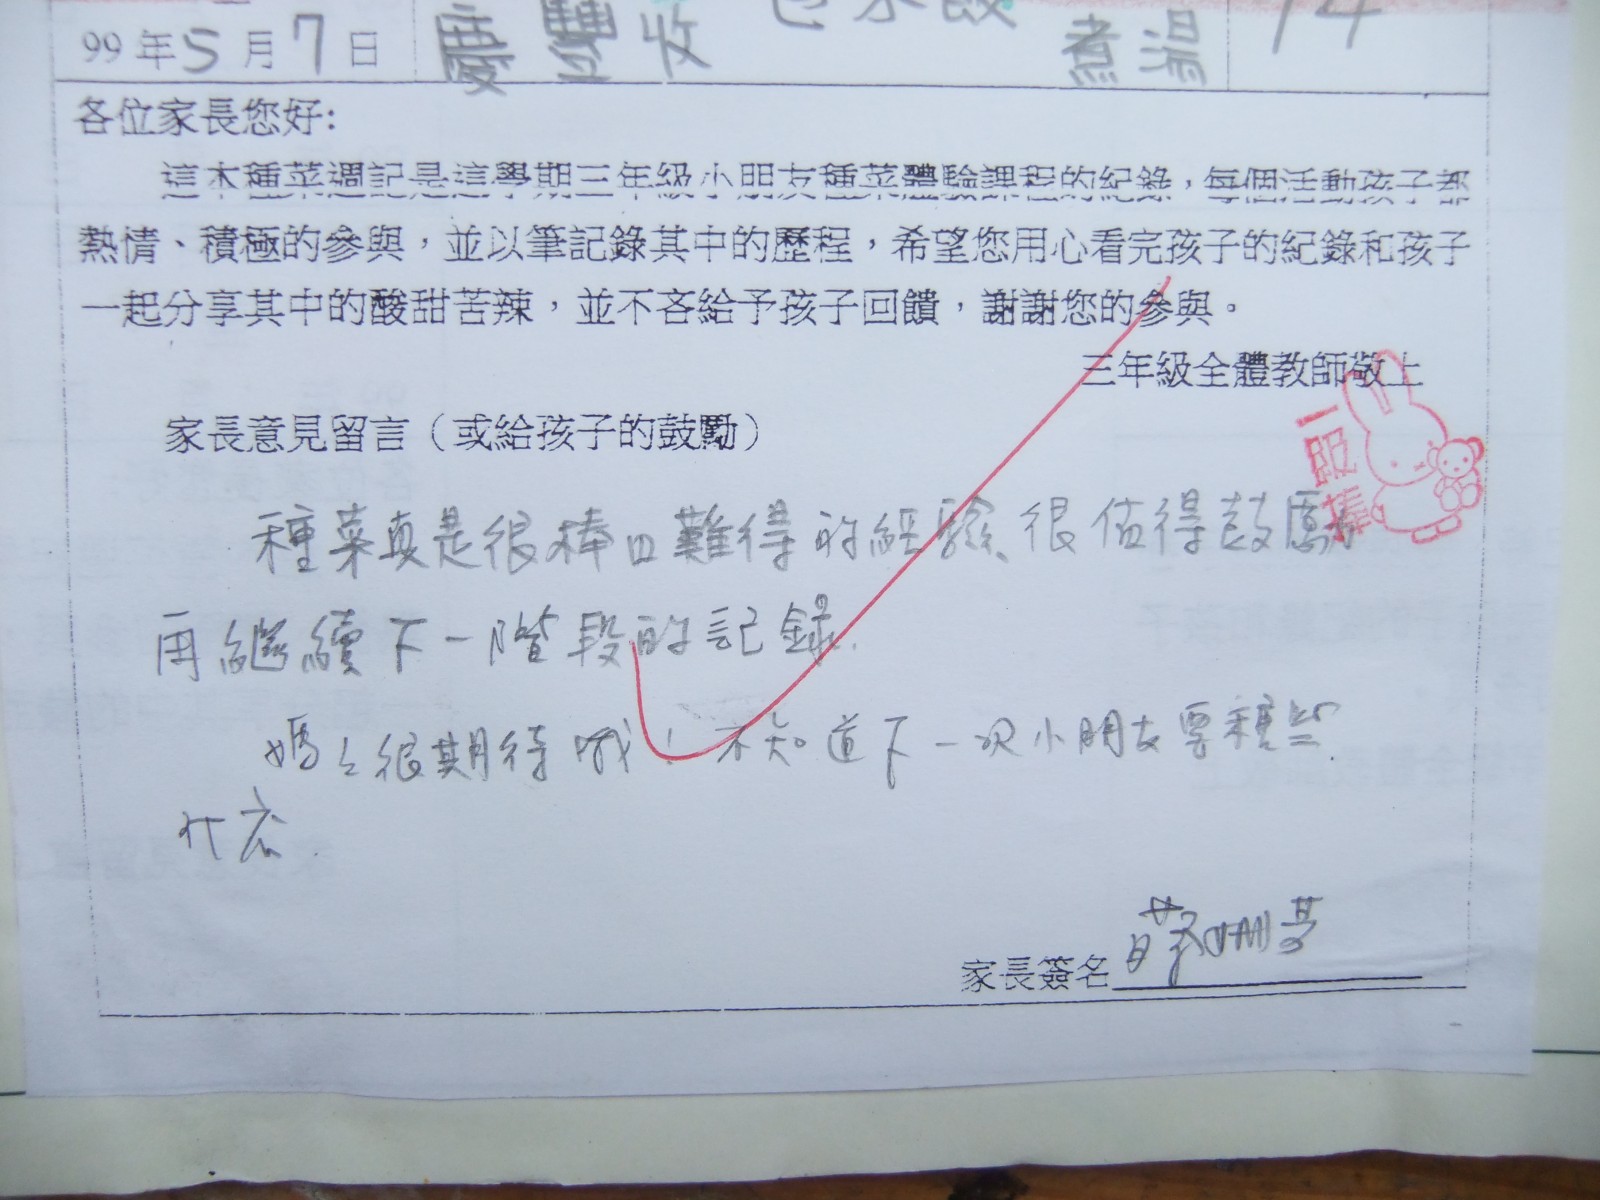 99年5月7日 慶豐收 包水餃 煮湯 14
各位家長您好:
這本種菜週記是這學期三年級小朋友種菜體驗課程的紀錄，每個活動孩子都
熱情、積極的參與，並以筆記錄其中的歷程，希望您用心看完孩子的紀錄和孩子
一起分享其中的酸甜苦辣，並不吝給予孩子回饋，謝謝您的參與。
三年級全體教師敬上
家長意見留言（或給孩子的鼓勵）
一級棒
種菜真是很棒且難得的經驗、很值得鼓勵
再繼續下一階段的記錄.
媽々很期待哦！不知道下一次小朋友要種些
什麼.
家長簽名